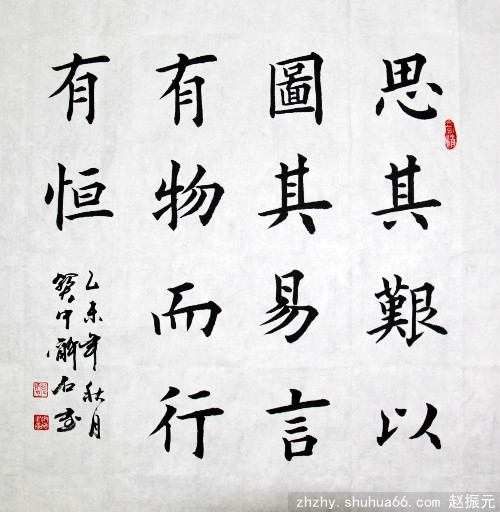 思其艱以
圖其易言
有物而行
有恒
乙未年秋月
zhzhy.shuhua66.com 赵振元